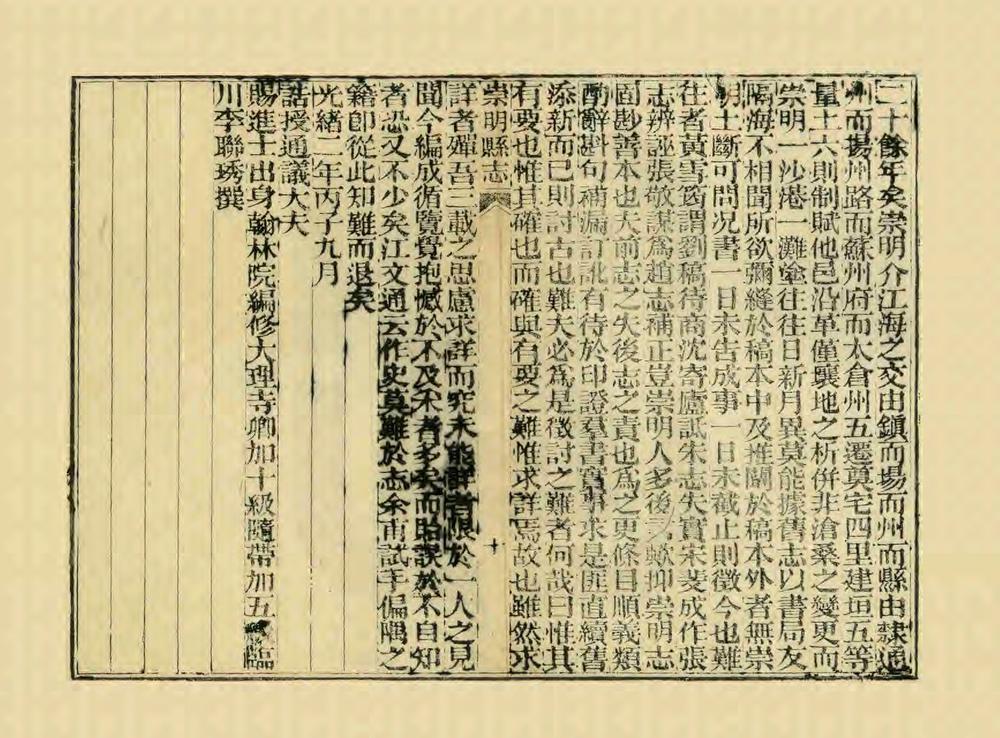 二十餘年矣崇明介江海之交由鎮而場而州而縣由隸通
州而揚州路而蘇州府而太倉州五遷奠宅四里建垣五等
量土六則制賦他邑沿革僅壤地之析併非滄桑之變更而
崇明一沙港一灘塗往往日新月異莫能據舊志以書局友
隔海不相聞所欲彌縫於稿本中及推闡於稿本外者無崇
明士斷可問况書一日未告成事一日未截止則徵今也難
往者黃雪筠謂劉稿待商沈寄廬詆朱志失實宋斐成作張
志辨誣張敬謀為趙志補正豈崇明人多後言歟抑崇明志
固尠善本也夫前志之失後志之責也為之更條目順義類
酌辭斟句補漏訂訛有待於印證羣書實事求是匪直續舊
添新而已則討古也難夫必為是徵討之難者何哉曰惟其
有要也惟其確也而確與有要之難惟求詳焉故也雖然求
崇明縣志
詳者殫吾三載之思慮求詳而究未能詳者限於一人之見
聞今編成循覽覺抱憾於不及采者多矣而貽誤於不自知
者恐又不少矣江文通云作史莫難於志余甫試手偏隅之
籍卽從此知難而退矣
光緒二年丙子九月
誥授通議大夫
賜進士出身翰林院編修大理寺卿加十級隨帶加五級臨
川李聯琇撰